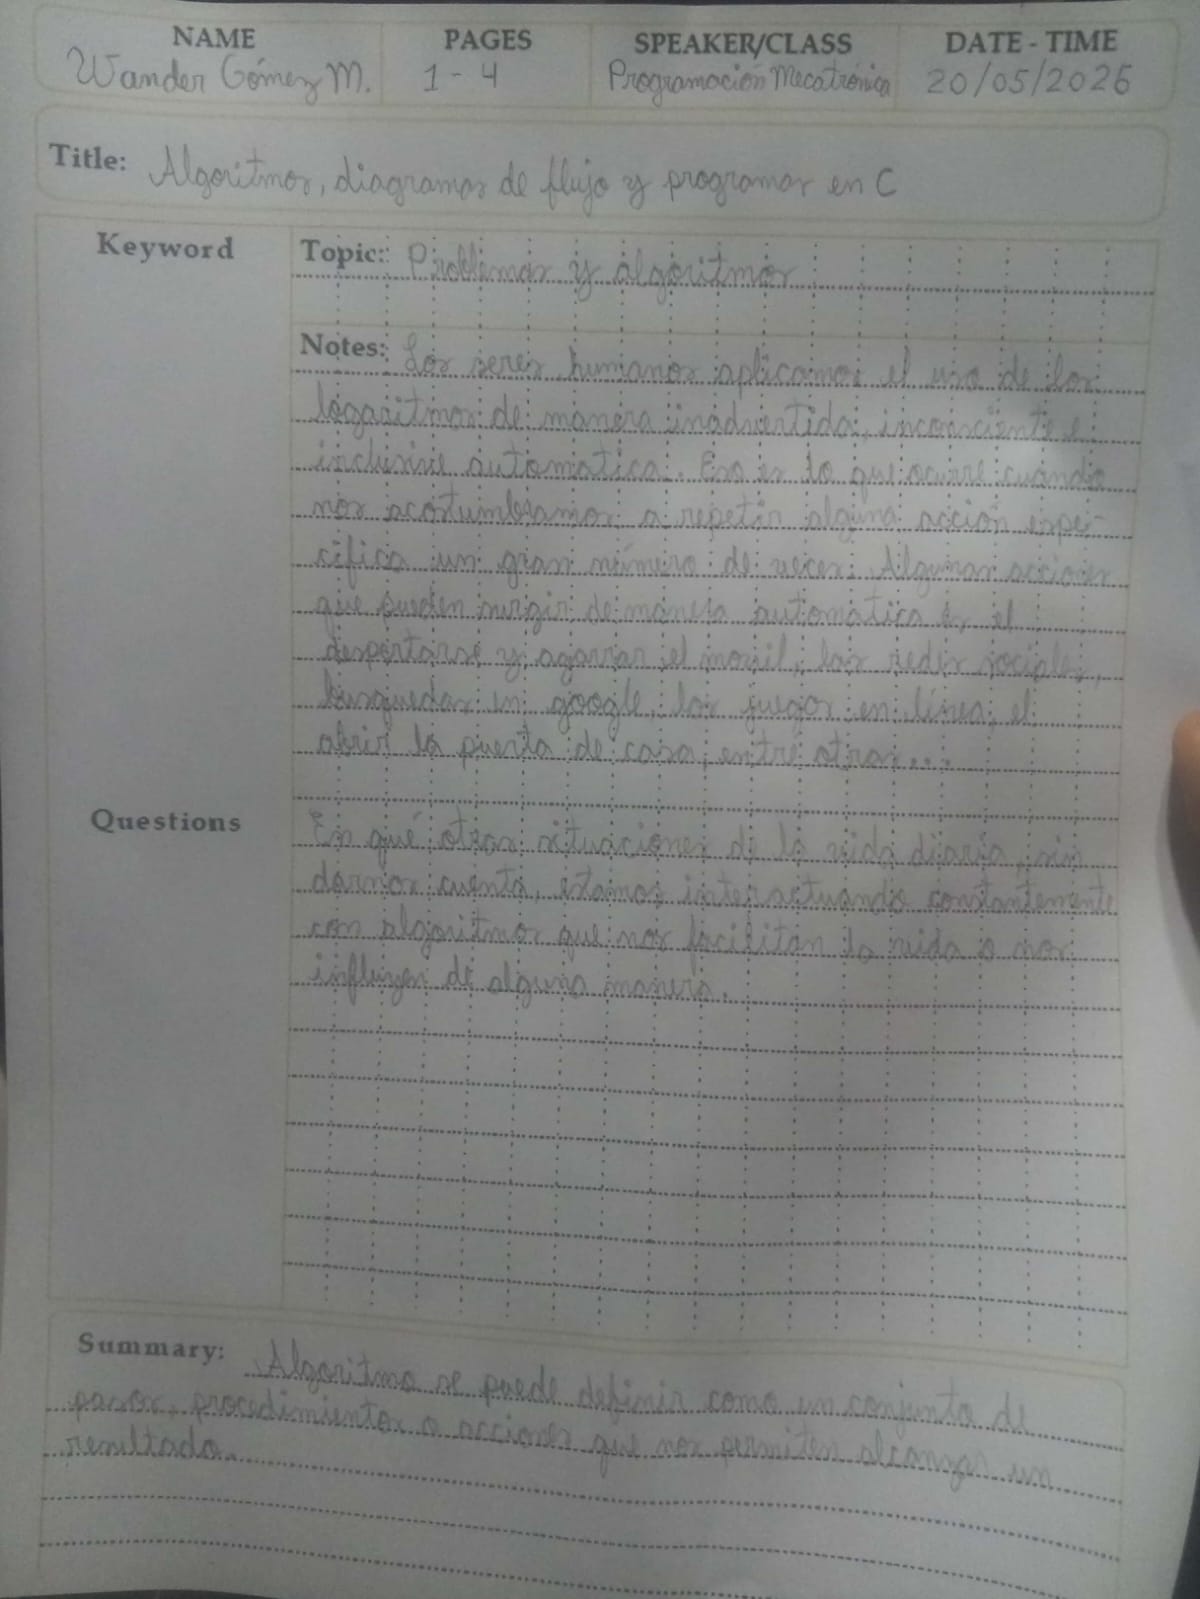 NAME PAGES SPEAKER/CLASS DATE - TIME
Wander Gómez M. 1 - 4 Programación Mecatrónica 20/05/2026
Title: Algoritmos, diagramas de flujo y programas en C
Keyword
Topic: Problemas y algoritmos
Notes: Los seres humanos aplicamos el uso de los
logaritmos de manera inadvertida, inconsciente e
inclusive automatica. Eso es lo que ocurre cuando
nos acostumbramos a repetir alguna acción espe-
cifica un gran número de veces. Algunas acciones
que pueden surgir de manera automatica es el
despertarse y agarrar el movil, las redes sociales,
busquedas en google, los juegos en línea, el
abrir la puerta de casa, entre otras...
Questions
En qué otras situaciones de la vida diaria, sin
darnos cuenta, estamos interactuando constantemente
con algoritmos que nos facilitan la vida o nos
influyen de alguna manera.
Summary: Algoritmo se puede definir como un conjunto de
pasos, procedimientos o acciones que nos permiten alcanzar un
resultado.